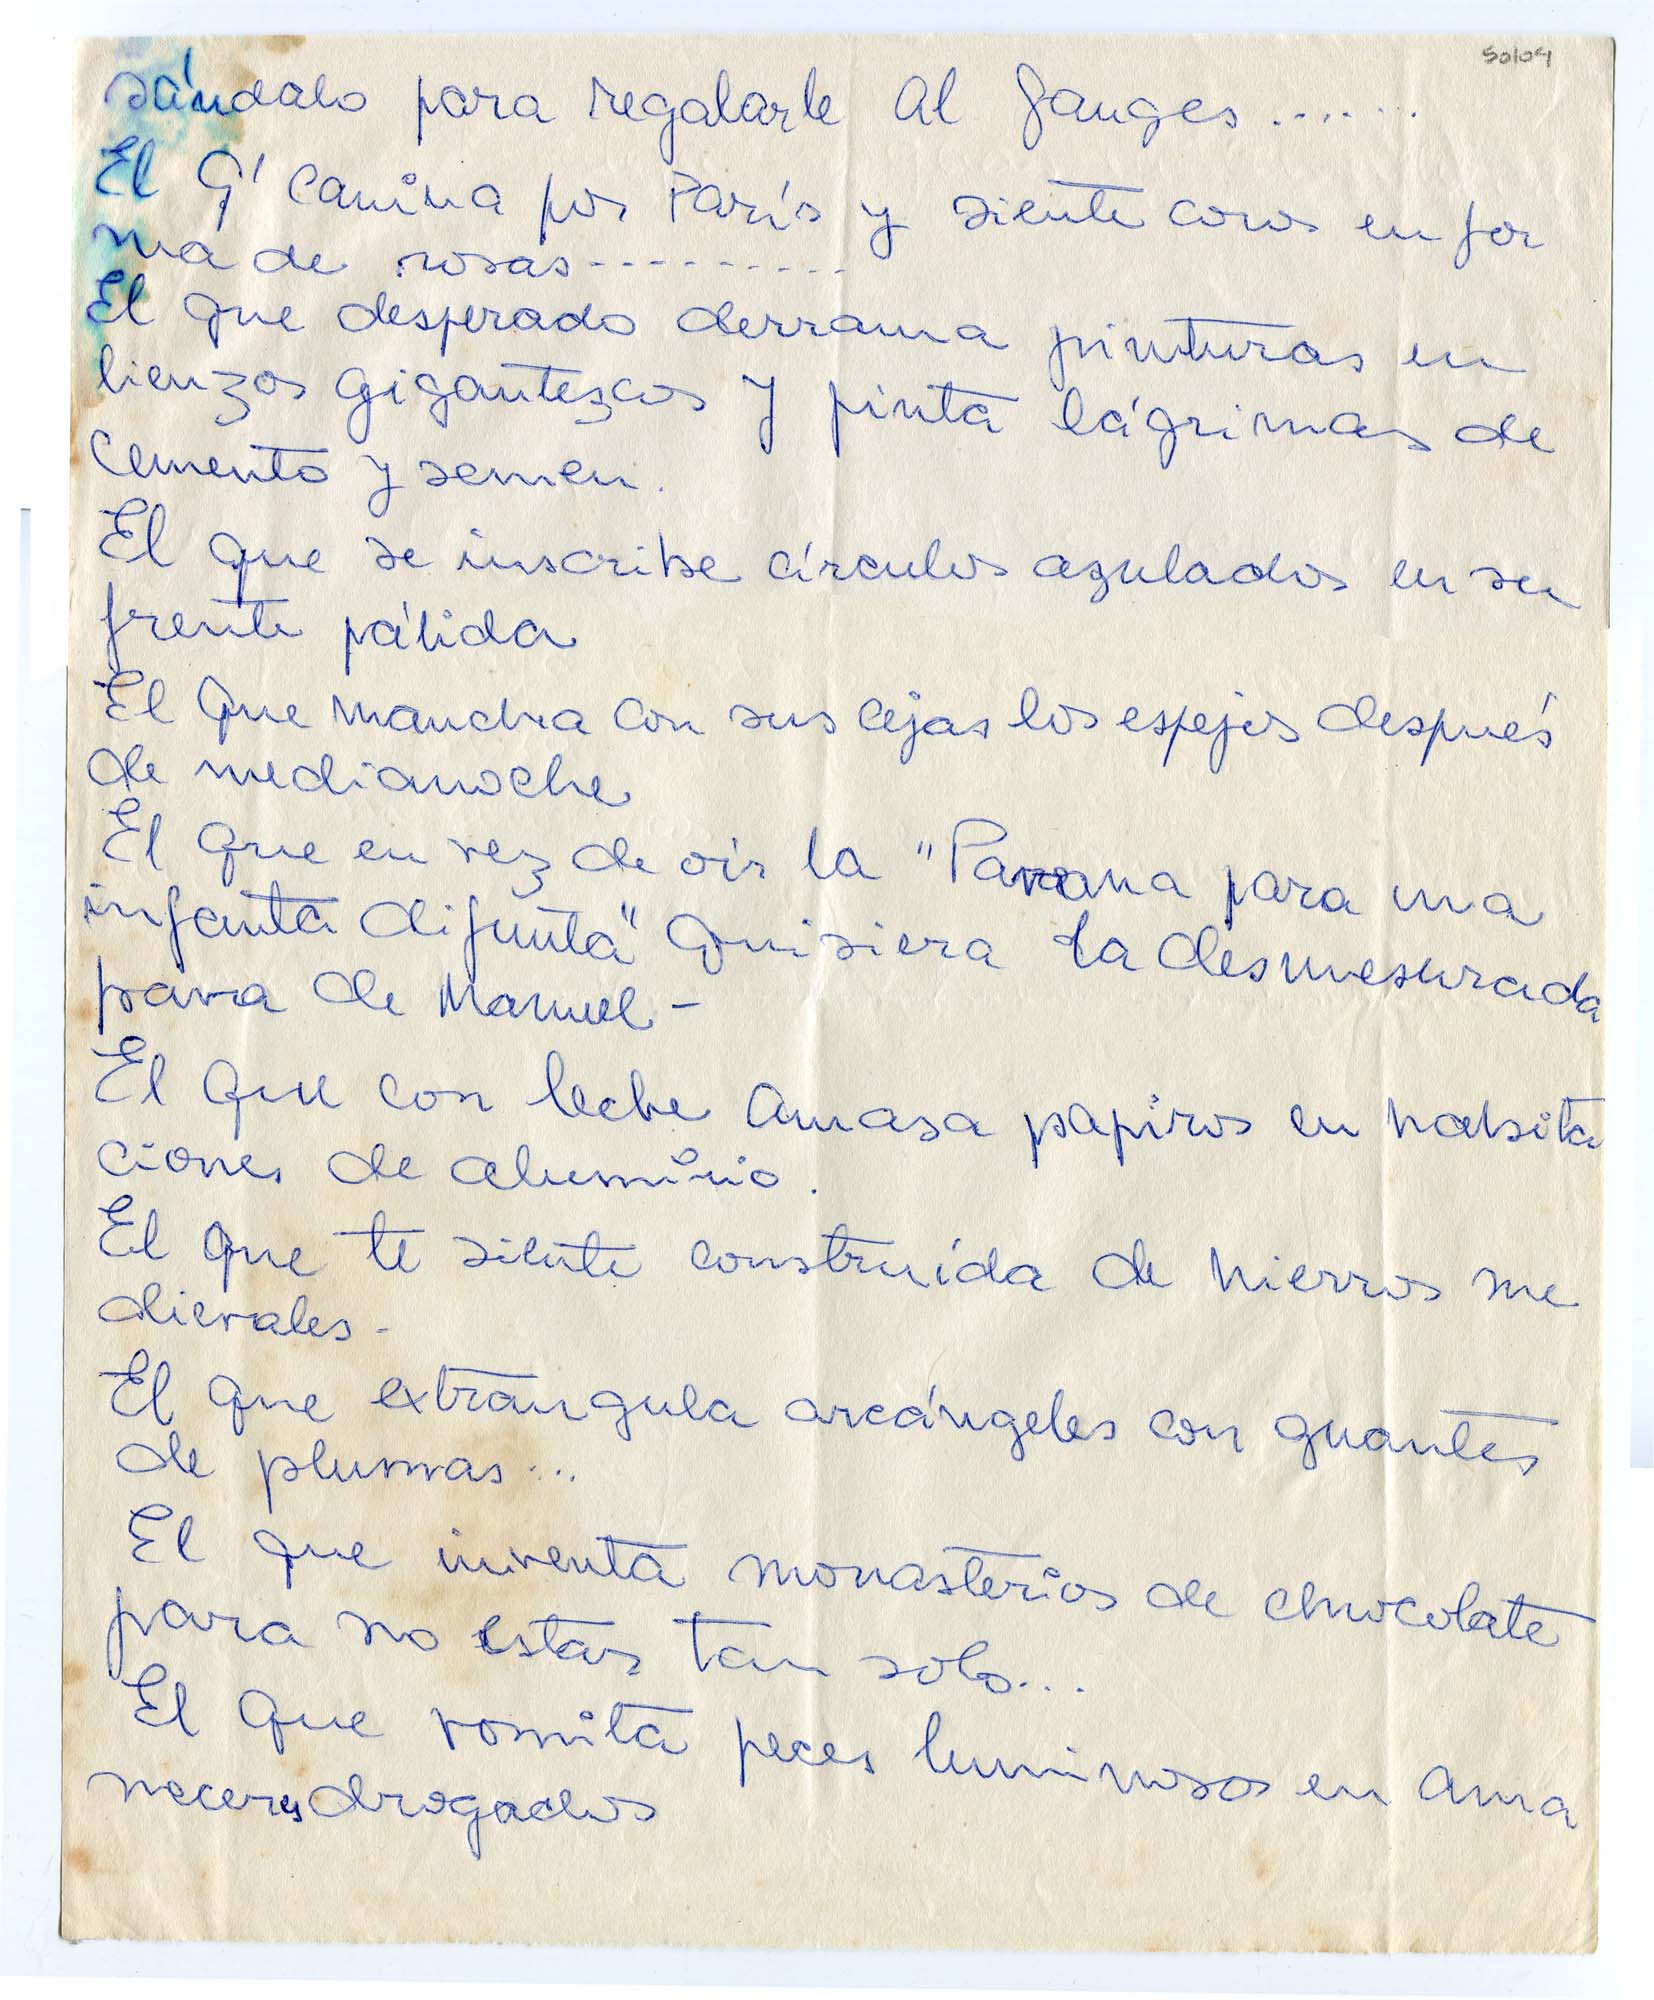 50104
sándalo para regalarle al Ganges......
El q' camina por París y siente coros en for
ma de rosas----------
El que desperado derrama pinturas en
lienzos gigantezcos y pinta lágrimas de
cemento y semen.
El que se inscribe círculos azulados en su
frente pálida
El que mancha con sus cejas los espejos después
de medianoche
El que en vez de oir la "Pavana para una
infanta difunta" quisiera la desmesurada
pava de Manuel-
El que con leche amasa papiros en habita
ciones de aluminio.
El que te siente construída de hierros me
dievales-
El que extrangula arcángeles con guantes
de plumas...
El que inventa monasterios de chocolate
para no estar tan solo...
El que vomita peces luminosos en ama
neceres drogados